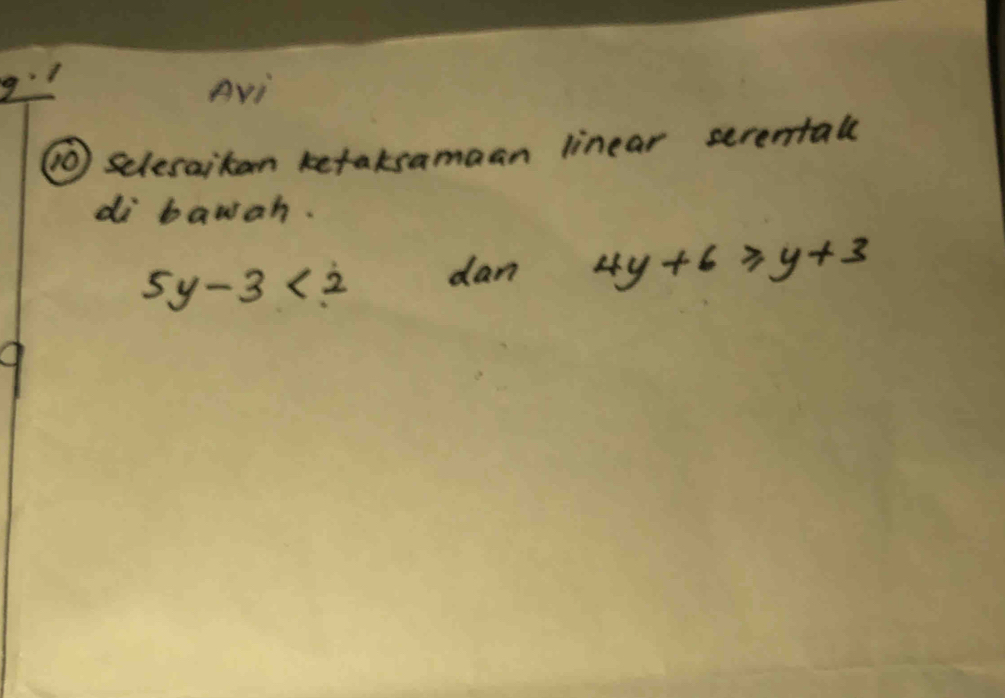 g.1
Avi
10 Selesaikan ketaksamaan linear serentak
di bawah.
5y - 3 < 2 dan 4y + 6 ⩾ y + 3
9